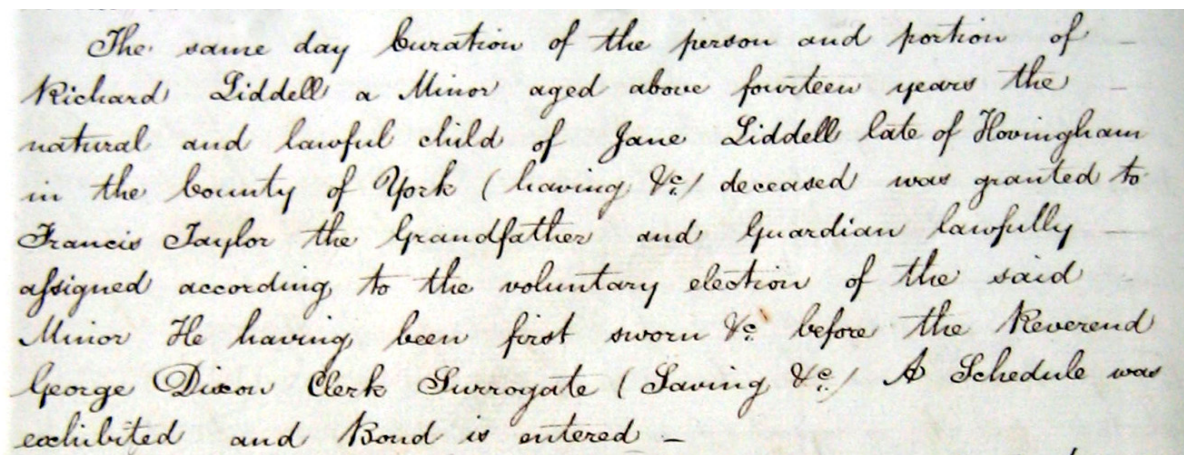 The same day Curation of the person and portion of –
Richard Liddell a Minor aged above fourteen years the –
natural and lawful child of Jane Liddell late of Hovingham
in the County of York (having &c.) deceased was granted to
Francis Taylor the Grandfather and Guardian lawfully –
assigned according to the voluntary election of the said
Minor He having been first sworn &c. before the Reverend
George Dixon Clerk Surrogate (Saving &c.) A Schedule was
exhibited and Bond is entered –